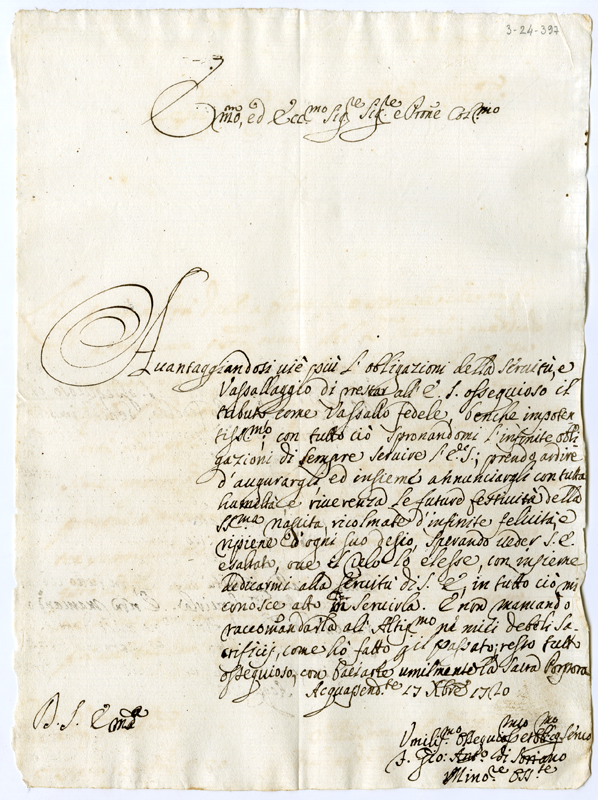 3-24-397
Em̃mo, ed Ecc.mo Sig.re Sig.re e Prone Col.mo
Auantaggiandosi uie più l'obligazioni della seruitù, e
Vassallaggio di prestar all'E. S. ossequioso il
tributo come Vassallo fedele, benche impoten
tiss.mo, con tutto ciò spronandomi l'infinite obli
gazioni di sempre seruire prendo ardire
d'augurargli ed insieme annunciargli con tutta
humiltà e riuerenza le future festiuità della
SS.ma nascita, ricolmate d'infinite felicità, e
ripiene d'ogni suo desio, sperando ueder S. E.
esaltato, oue il Cielo lo elesse, con insieme
dedicarmi alla seruitù di S. E., in tutto ciò mi
conosce atto in seruirla. E non mancando
raccomandarla all'Altis.mo ne miei deboli Sa
crificij, come hò fatto p il passato; resto tutto
ossequioso, con baciarle umilmente la Sacra Porpora
Acquapend.te 17 Xbre 1720
D. S. E. Em̃a
Umilis.mo ossequio.mo et obblig.mo seruo
F. Gio: Ant.o di Soriano
Mino.re Oss.te